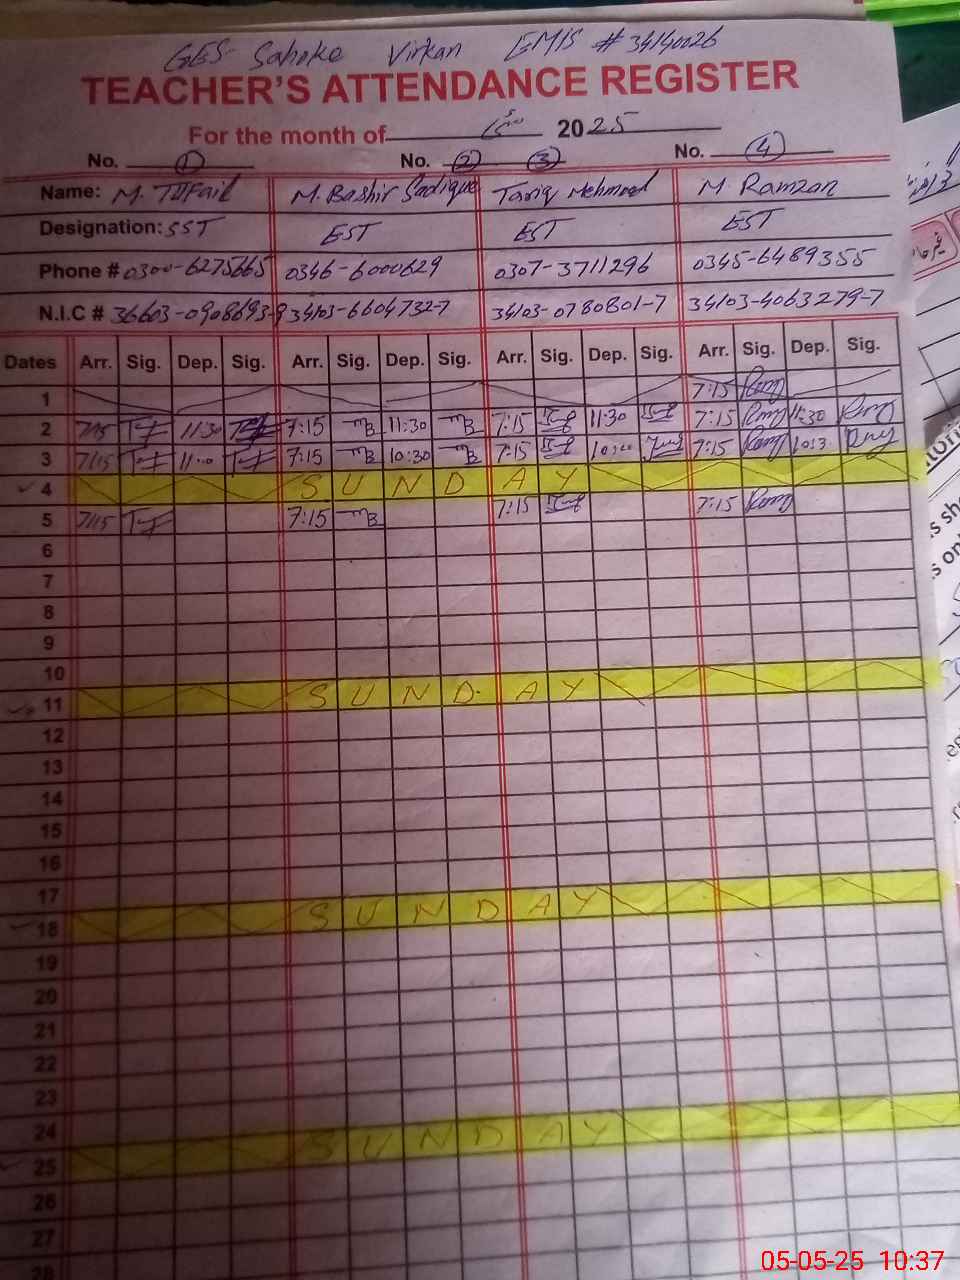 GES Sahoke Virkan EMIS # 34140026
TEACHER'S ATTENDANCE REGISTER
For the month of مئی 2025
No. 1 No. 2 3 No. 4
Name: M. Tufail M. Bashir Sadique Tariq Mehmood M. Ramzan
Designation: SST EST EST EST
Phone # 0300-6275665 0346-6000629 0307-3711296 0345-6489355
N.I.C # 36603-0908693-9 34103-6604732-7 34103-0780801-7 34103-4063279-7
Dates Arr. Sig. Dep. Sig. Arr. Sig. Dep. Sig. Arr. Sig. Dep. Sig. Arr. Sig. Dep. Sig.
1 7:15
2 7:15 11:30 7:15 MB 11:30 MB 7:15 11:30 7:15 11:30
3 7:15 11:00 7:15 MB 10:30 MB 7:15 7:15
4 SUNDAY
5 7:15 7:15 MB 7:15 7:15
6
7
8
9
10
11 SUNDAY
12
13
14
15
16
17
18 SUNDAY
19
20
21
22
23
24
25 SUNDAY
26
27
28
05-05-25 10:37